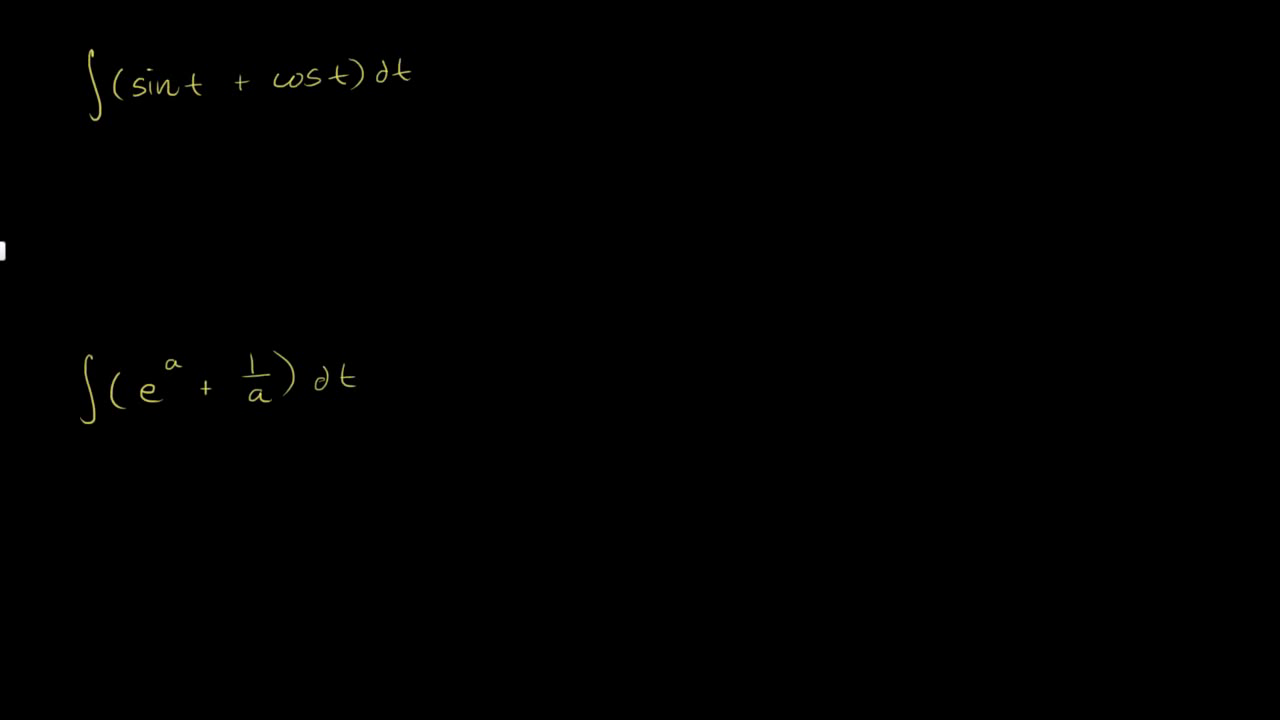 ∫(sin t + cos t) dt
∫(e^a + 1/a) dt